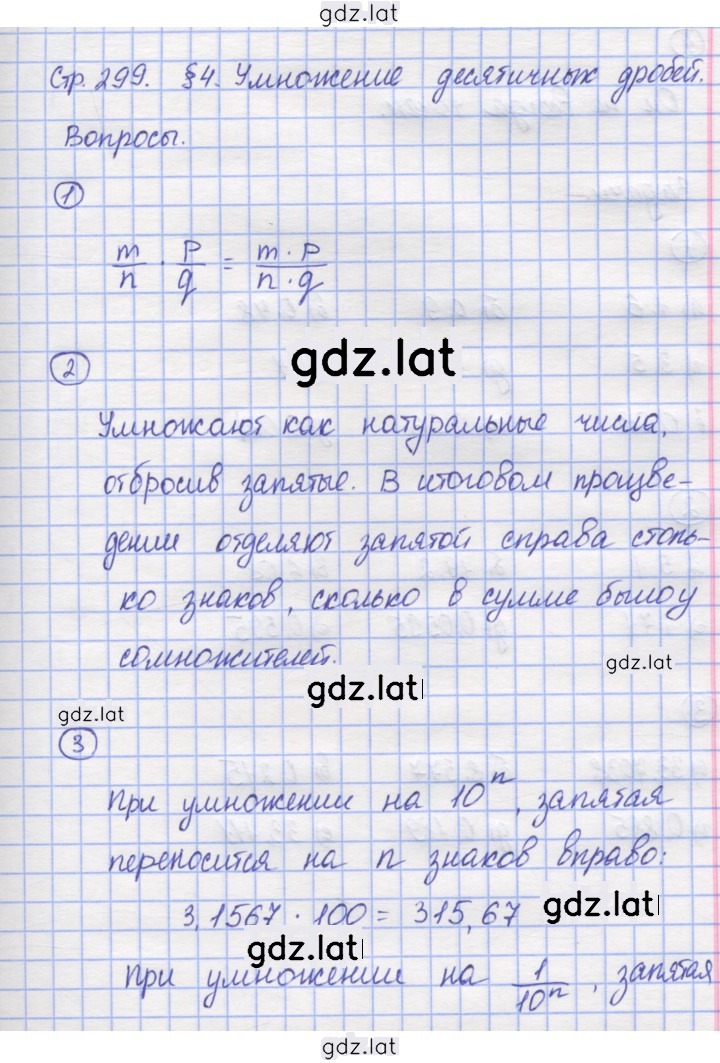 gdz.lat
Стр. 299. §4. Умножение десятичных дробей.
Вопросы.
1
m/n · p/q = m · p/n · q
2
gdz.lat
Умножают как натуральные числа,
отбросив запятые. В итоговом произве-
дении отделяют запятой справа столь-
ко знаков, сколько в сумме было у
сомножителей.
gdz.lat
gdz.lat
gdz.lat
3
При умножении на 10^n, запятая
переносится на n знаков вправо:
3,1567 · 100 = 315,67
gdz.lat
gdz.lat
При умножении на 1/10^n, запятая
gdz.lat